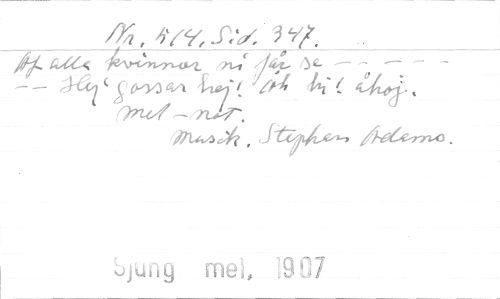 Nr. 514. Sid. 347.
Af alla kvinnor ni får se - - - - -
- - Hej gossar hej! Åh hi! åhoj.
Mel-not.
Musik. Stephan Adamo.
Sjung mel, 1907